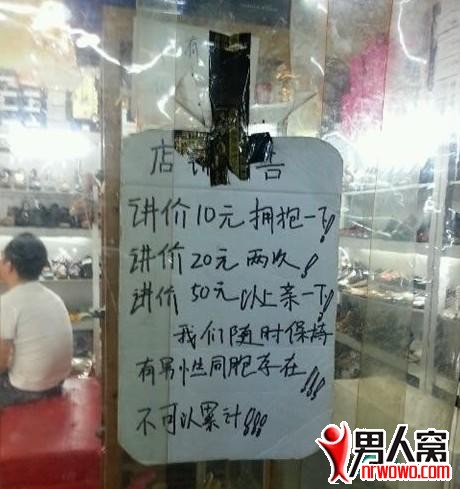 有
店 告
讲价10元拥抱一下!
讲价20元两次!!
讲价50元以上亲一下!
我们随时保持
有男性同胞存在!!!
不可以累计!!!
男人窝
nrwowo.com